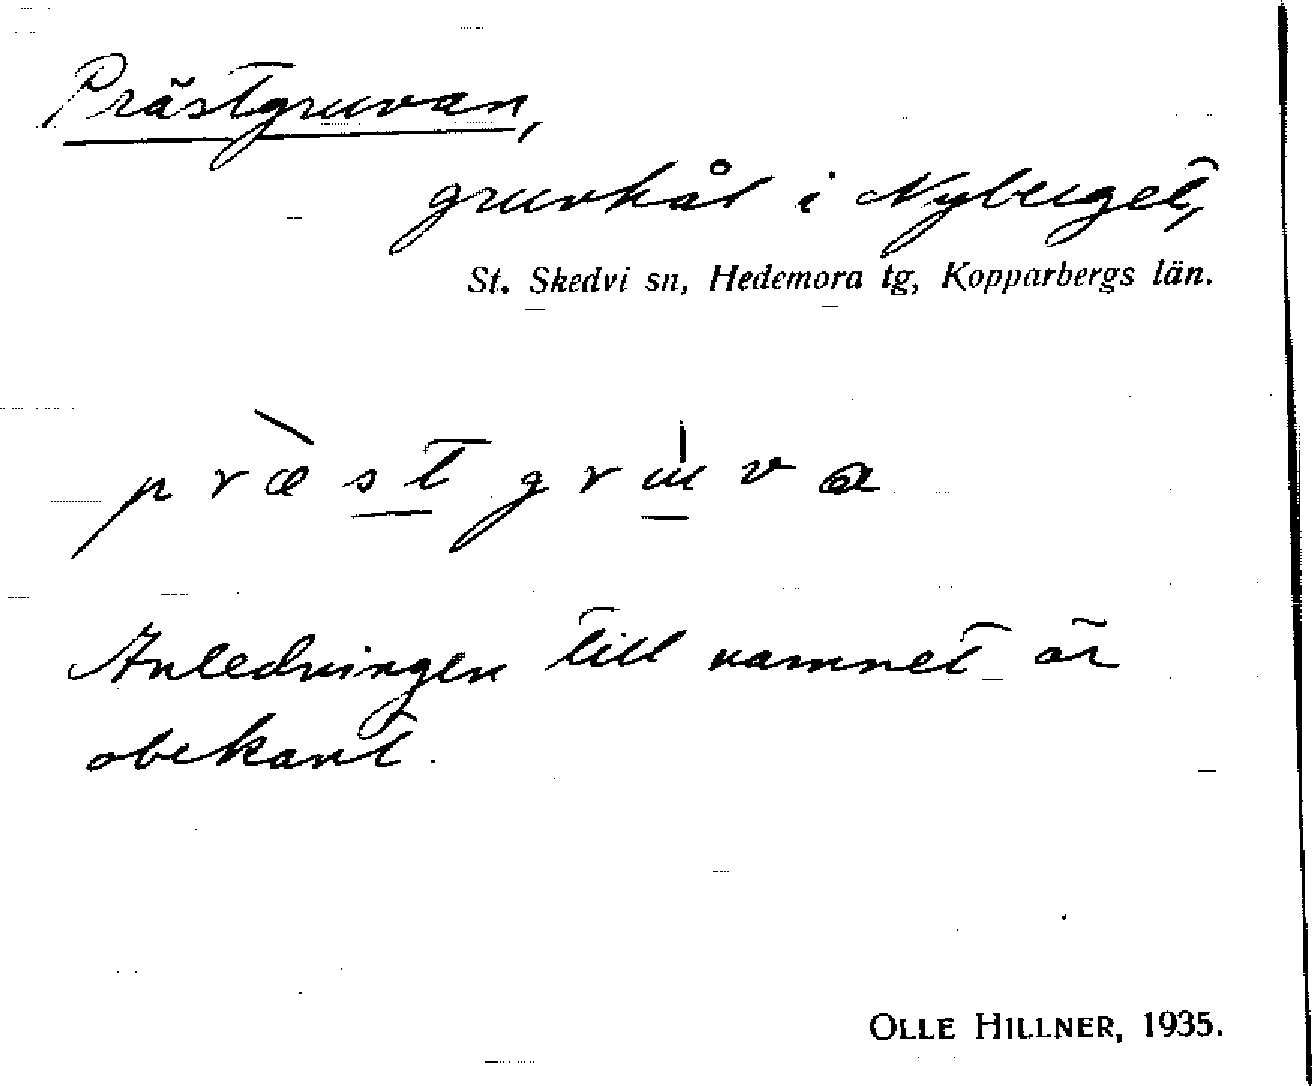 Prästgruvan,
gruvhål i Nyberget,
St. Skedvi sn, Hedemora tg, Kopparbergs län.
præstgruva
Anledningen till namnet är
obekant.
OLLE HILLNER, 1935.